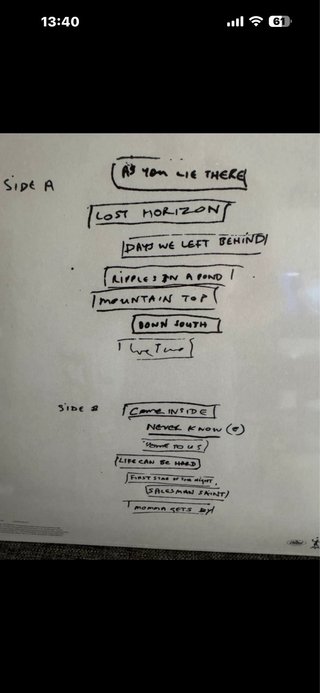 13:40
61
AS YOU LIE THERE
SIDE A
LOST HORIZON
DAYS WE LEFT BEHIND
RIPPLES IN A POND
MOUNTAIN TOP
DOWN SOUTH
We Two
SIDE B
COME INSIDE
NEVER KNOW (E)
HOME TO US
LIFE CAN BE HARD
FIRST STAR OF THE NIGHT
SALESMAN SAINT
MOMMA GETS BY